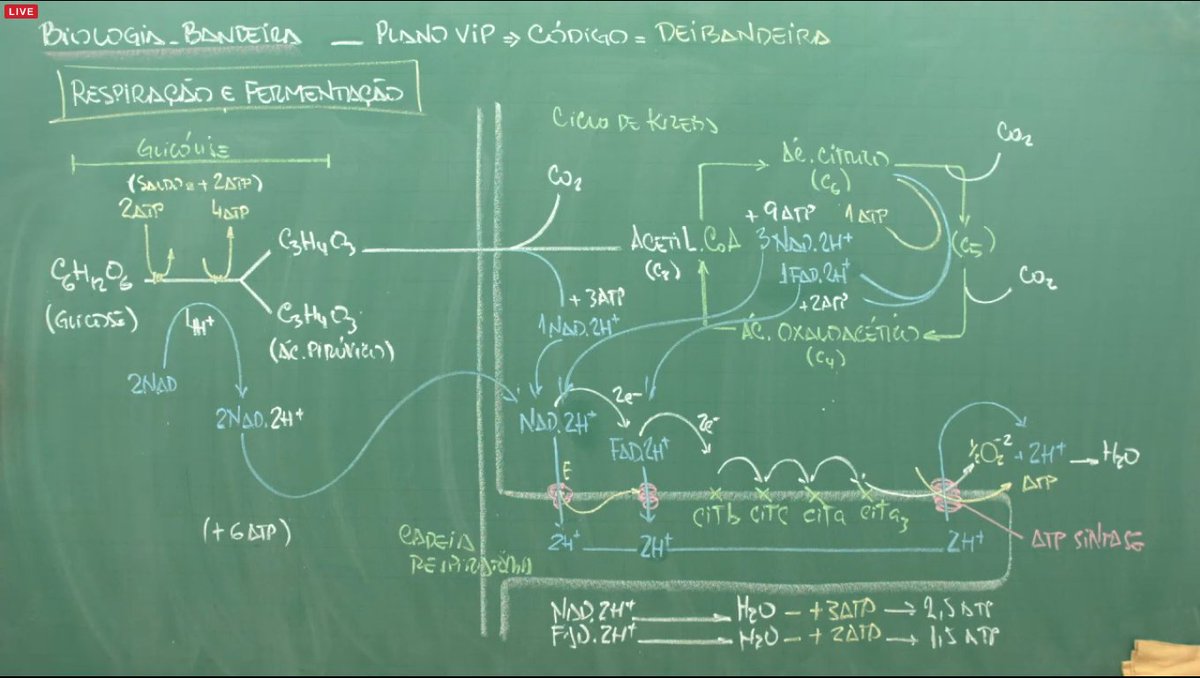 LIVE
BIOLOGIA - BANDEIRA — PLANO VIP ⇒ CÓDIGO = DEIBANDEIRA
RESPIRAÇÃO E FERMENTAÇÃO
GLICÓLISE
(SALDO = + 2ATP)
2ATP 4ATP
C6H12O6
(GLICOSE)
C3H4O3
C3H4O3
(ÁC. PIRÚVICO)
4H+
2NAD
2NAD.2H+
(+ 6 ATP)
CICLO DE KREBS
CO2
ACETIL.CoA
(C2)
+ 3ATP
1NAD.2H+
ÁC. CÍTRICO
(C6)
CO2
+ 9ATP 1ATP
3NAD.2H+
(C5)
1FAD.2H+
+2ATP
CO2
ÁC. OXALOACÉTICO
(C4)
NAD.2H+
2e-
FAD.2H+
2e-
E
CiTb CiTc CiTa CiTa3
½O2-2 + 2H+ → H2O
ATP
CADEIA
RESPIRATÓRIA
2H+ 2H+ 2H+
ATP SINTASE
NAD.2H+ → H2O - + 3ATP → 2,5 ATP
FAD.2H+ → H2O - + 2ATP → 1,5 ATP